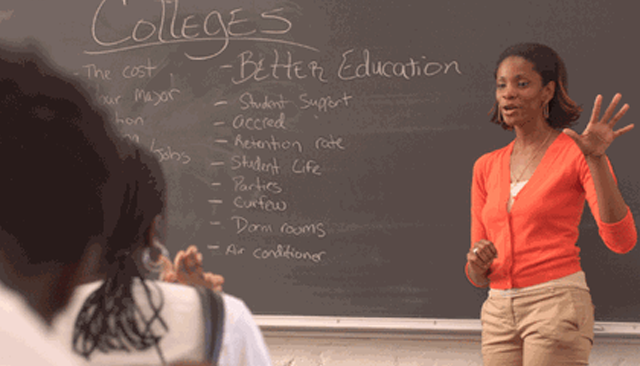 Colleges
- The cost
Major
/Jobs
- Better Education
- Student Support
- accred.
- Retention rate
- Student Life
- Parties
- Curfew
- Dorm rooms
- Air conditioner